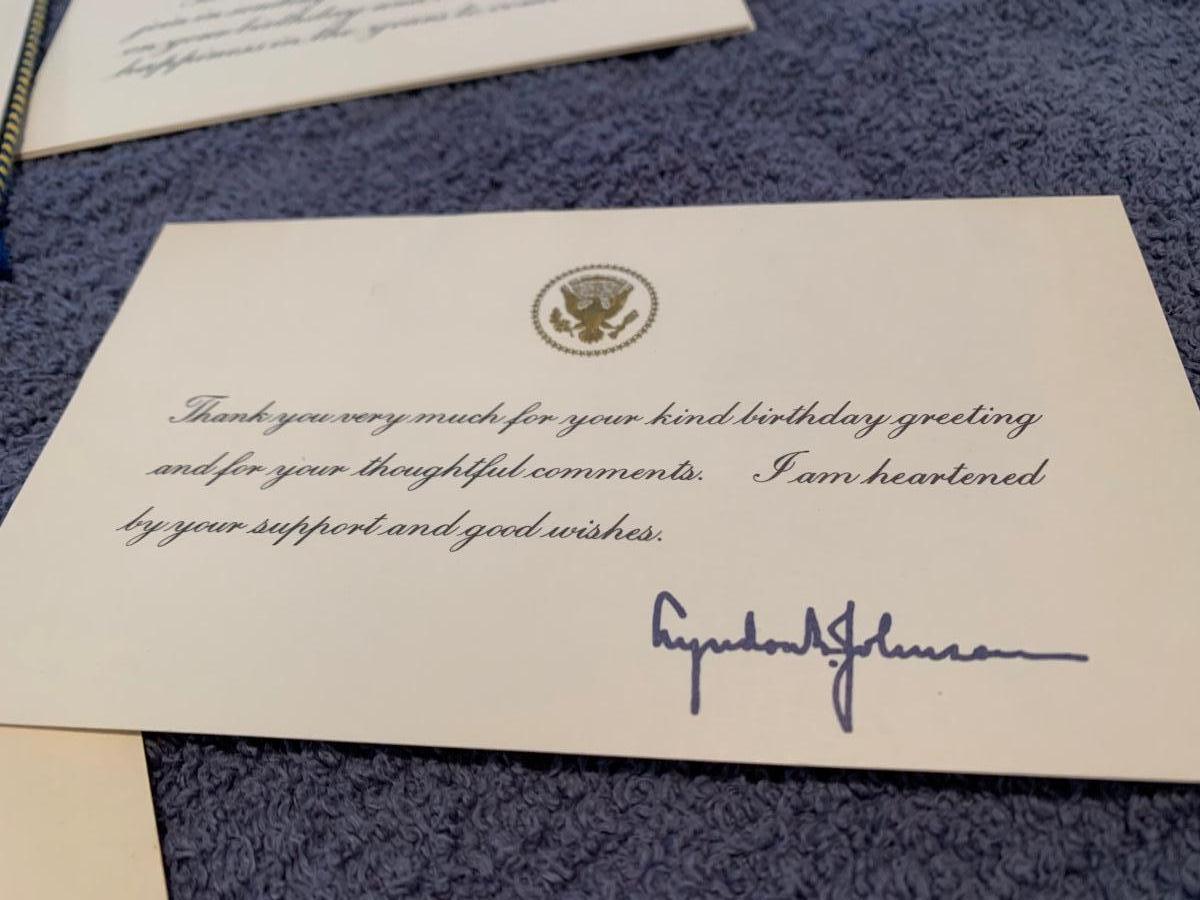 on your birthday and
happiness in the years to
Thank you very much for your kind birthday greeting
and for your thoughtful comments. I am heartened
by your support and good wishes.
Lyndon B. Johnson